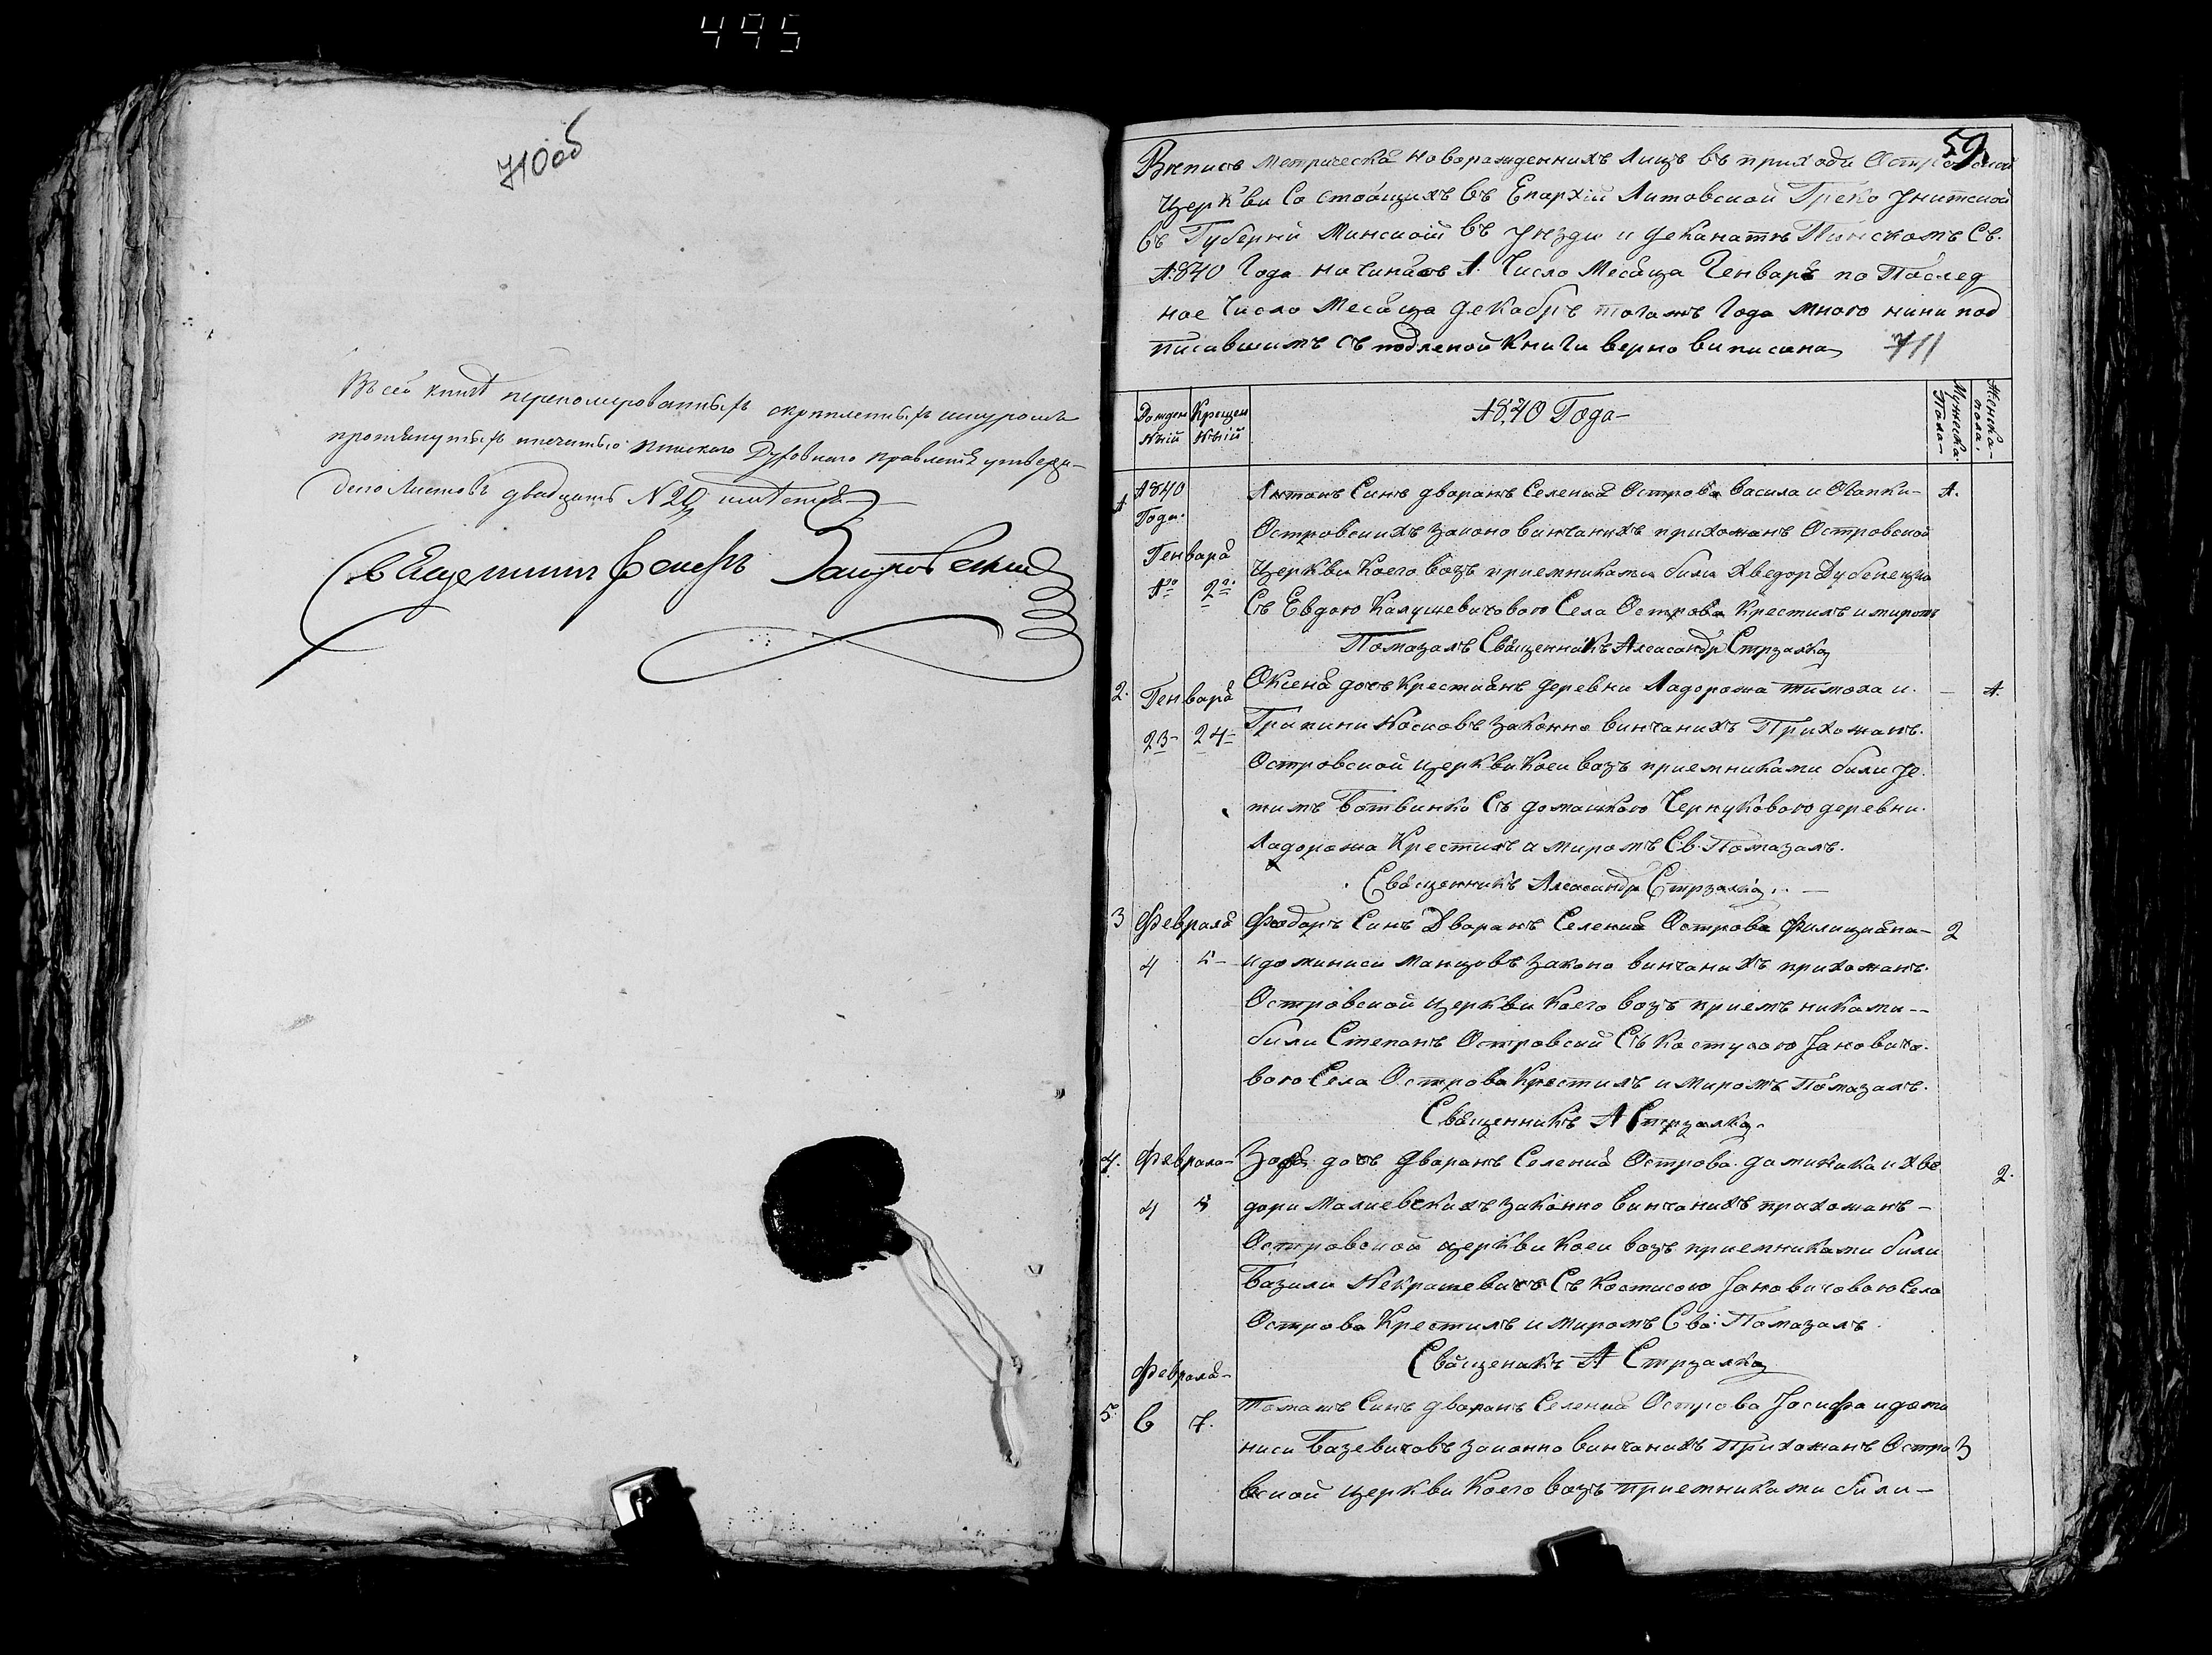 495
710об
Въ сей книгѣ перенумерованныхъ скрѣпленныхъ шнуромъ
протянутыхъ и печатью Пинскаго Духовнаго Правленія утверж-
дено Листовъ двадцать N 20,
Священникъ
59.
Выпись Метрическа новорожденнихъ Лицъ въ приходи Островской
Церкви Состоящихъ въ Епархіи Литовской Греко Унитской
въ Губерніи Минской въ Уезди и Деканатѣ Пинскомъ Съ
1840 Года начинаясь 1. Число Месяца Генваря по Послед
ное Число Месяца Декабря тогожъ Года мною ниже под
писавшимъ съ подленой Книги верно виписана
711
Рожден Крещен
ный ный
1840 Года
Мужеска Пола
Женска пола
1 1840 Года. Антонъ Синъ дворянъ Селения Острова Васила и Огапки 1.
Островскихъ законо винчанихъ прихожанъ Островской
Генваря
Церкви Коего возъ приемниками били Хведор Дубенецки
1го 2го
Съ Евдою Калушевичовою Села Острова Крестилъ и миромъ
Помазалъ Священникъ Александр Стрзалка
2. Генваря Оксеня дочь Крестиянъ деревни Ладорожа тимоха и 1.
23 24 Грипини Носковъ законно винчанихъ Прихожанъ
Островской Церкви Коеи возъ приемниками били Је
тимъ Ботвинко Съ домашкою Чернуковою деревни
Ладорожа Крестилъ и миромъ Св. Помазалъ.
Священникъ Александр Стрзалка
3 Февраля Фодоръ Синъ Дворянъ Селения Острова Филицияна 2
4 5 и доминиси манцовъ законо винчанихъ прихожанъ
Островской Церкви Коего возъ приемъ никами
били Степанъ Островский Съ Костусою Јановичо
вою Села Острова Крестилъ и миромъ Помазалъ.
Священникъ А Стрзалка.
4. Февраля Зофя дочь дворянъ Селения Острова доминика и Хве 2.
4 5 дори Малиевскихъ законно винчанихъ прихожанъ
Островской церкви Коеи возъ приемниками били
Базили Некрашевичъ Съ Костисою Јановичовою Села
Острова Крестилъ и миромъ Свя: Помазалъ.
Священикъ А Стрзалка
Февраля
5. 6 7. Томашъ Синъ дворанъ Селения Острова Јосифа и доми
ниси Базевичовъ законно винчанихъ Прихожанъ Остро 3
вской Церкви Коего возъ приемниками били